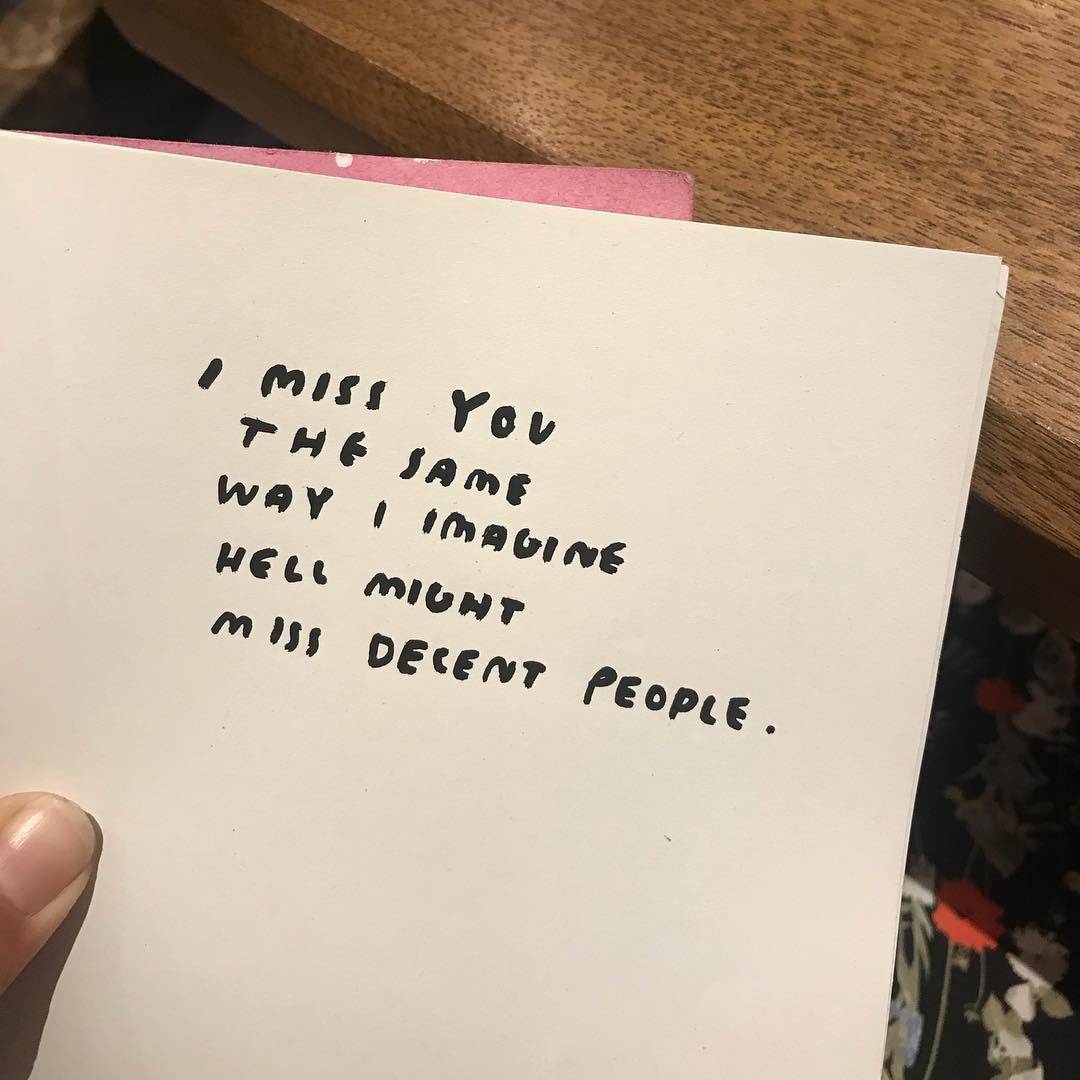 I MISS YOU
THE SAME
WAY I IMAGINE
HELL MIGHT
MISS DECENT PEOPLE.